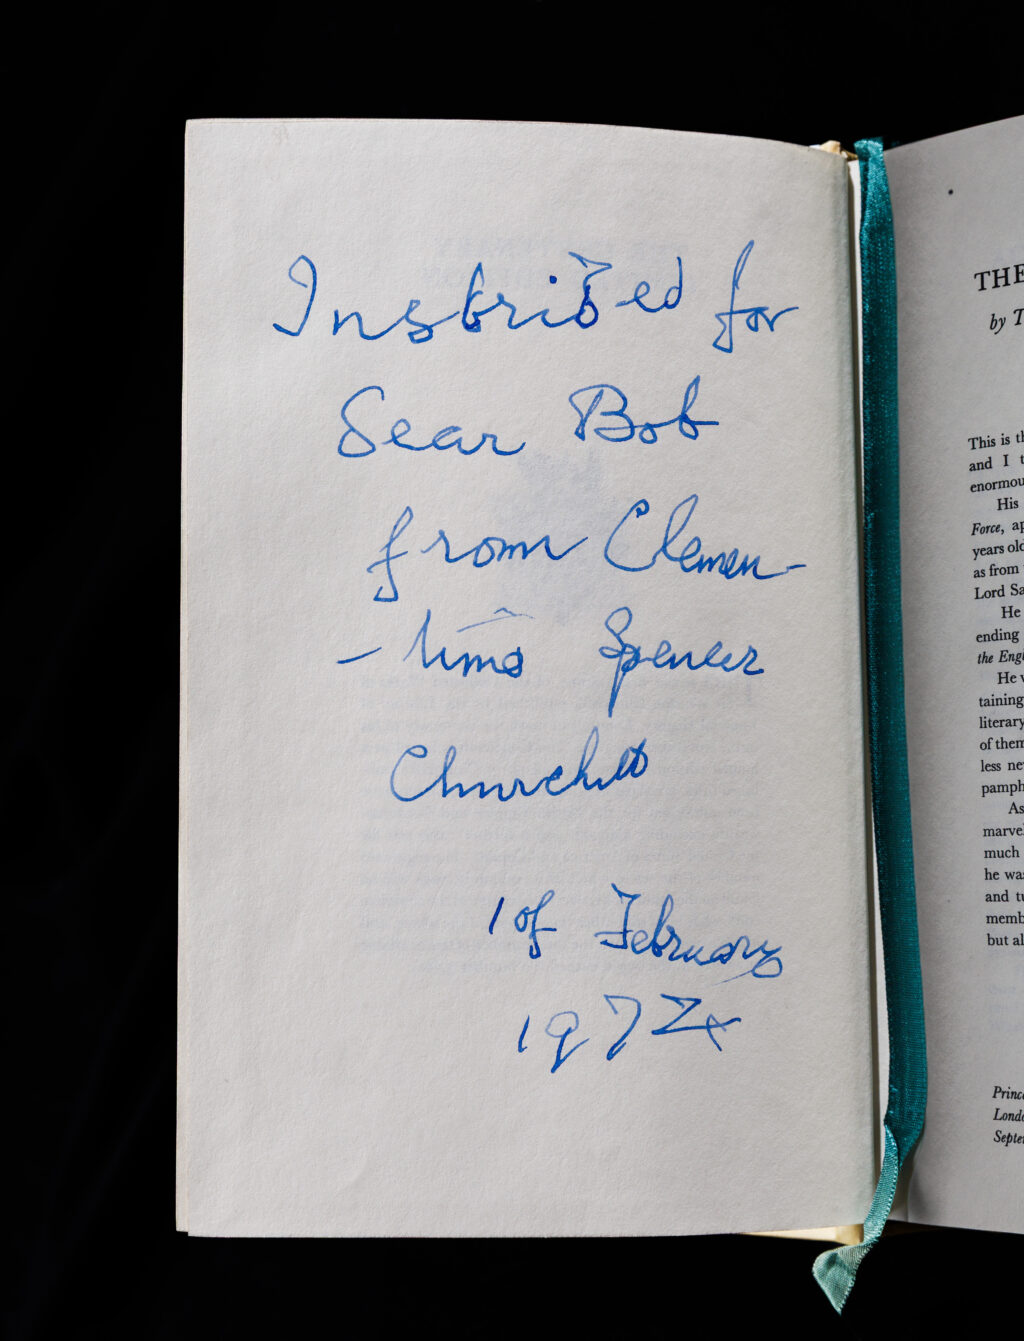 Inscribed for
Dear Bob
from Clemen-
-tine Spencer
Churchill
1 of February
1972
THE
by T
This is th
and I t
enormou
His
Force, ap
years old
as from
Lord Sa
He
ending
the Engl
He w
taining
literary
of them
less ne
pamph
As
marvel
much
he was
and tu
memb
but al
Prince
Londo
Septe